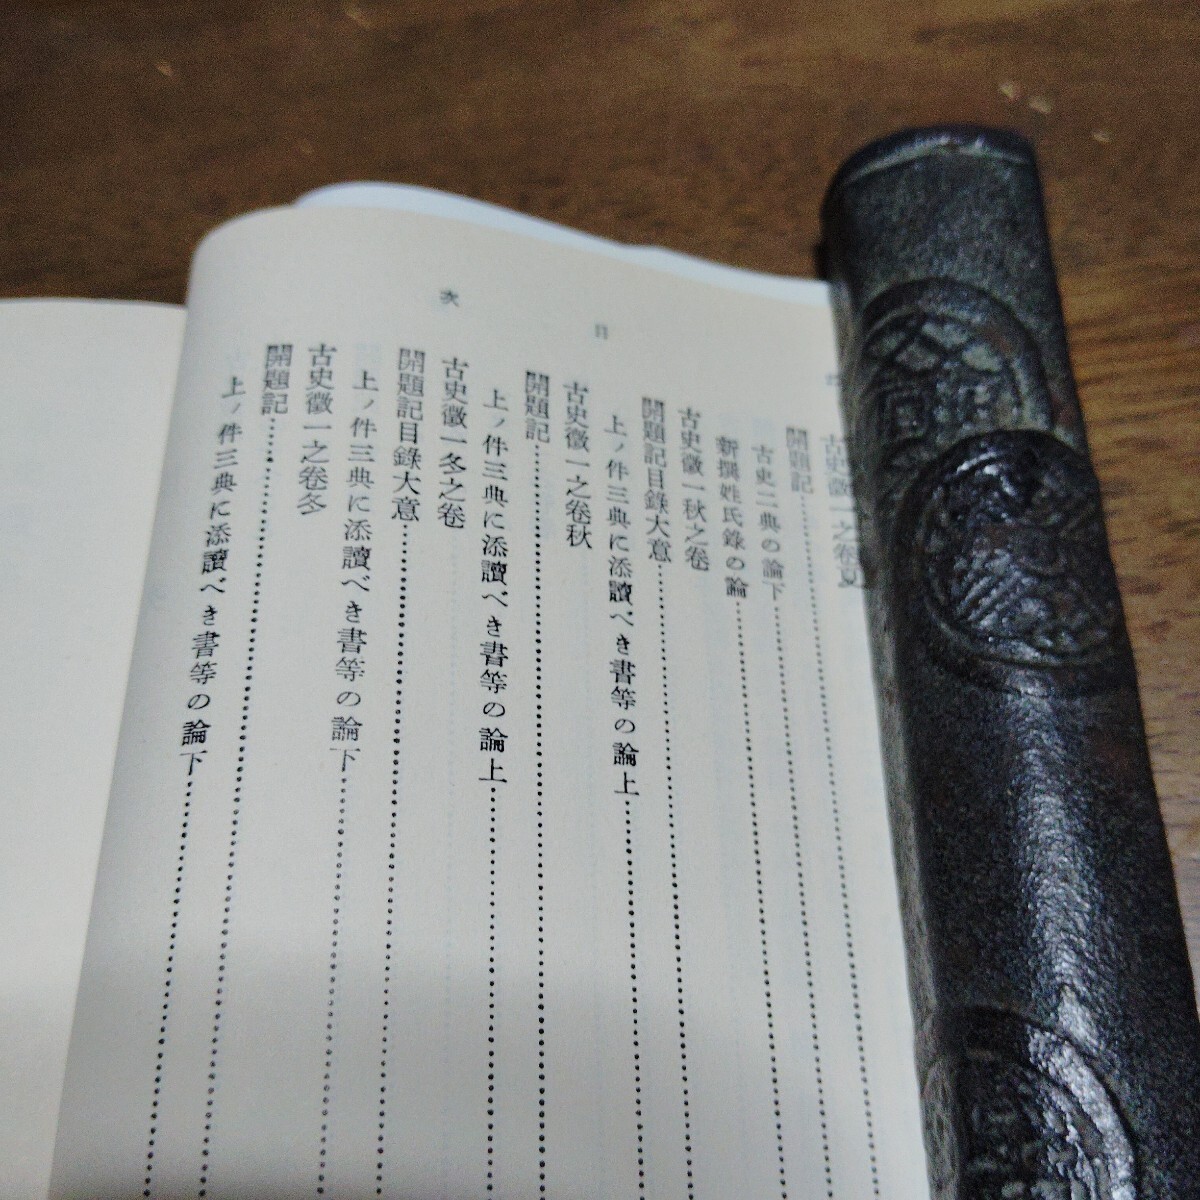 目次
古史徵一之卷夏
開題記
古史二典の論下
新撰姓氏錄の論
古史徵一秋之卷
開題記目錄大意
上ノ件三典に添讀べき書等の論上
古史徵一之卷秋
開題記
上ノ件三典に添讀べき書等の論上
古史徵一冬之卷
開題記目錄大意
上ノ件三典に添讀べき書等の論下
古史徵一之卷冬
開題記
上ノ件三典に添讀べき書等の論下